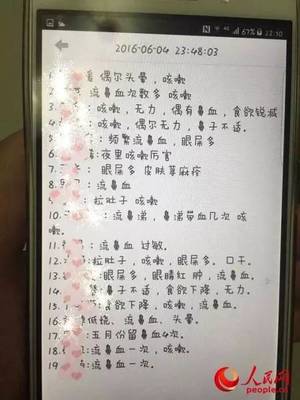 67% 22:10
2016-06-04 23:48:03
1. 偶尔头晕，咳嗽
流鼻血次数多 咳嗽
3. ：咳嗽，无力，偶有鼻血，食欲锐减
4. ：咳嗽，偶尔无力，鼻子不适。
：频繁流鼻血，眼屎多
6. 夜里咳嗽厉害
7. ：眼屎多 皮肤荨麻疹
8. ：流鼻血
9. ：拉肚子 咳嗽
10. ：流鼻涕，鼻涕带血几次 咳嗽。
11. ：流鼻血 过敏。
12. ：拉肚子，咳嗽，眼屎多。口干。
13. ：眼屎多，眼睛红肿，流鼻血。
14. ：鼻子不适，食欲下降，无力。
15. ：食欲下降，咳嗽，流鼻血。
16. 低烧、流鼻血、头晕。
17. ：五月份留鼻血4次。
18. ：流鼻血一次，咳嗽。
19. ：流鼻血一次。
人民网
people.cn